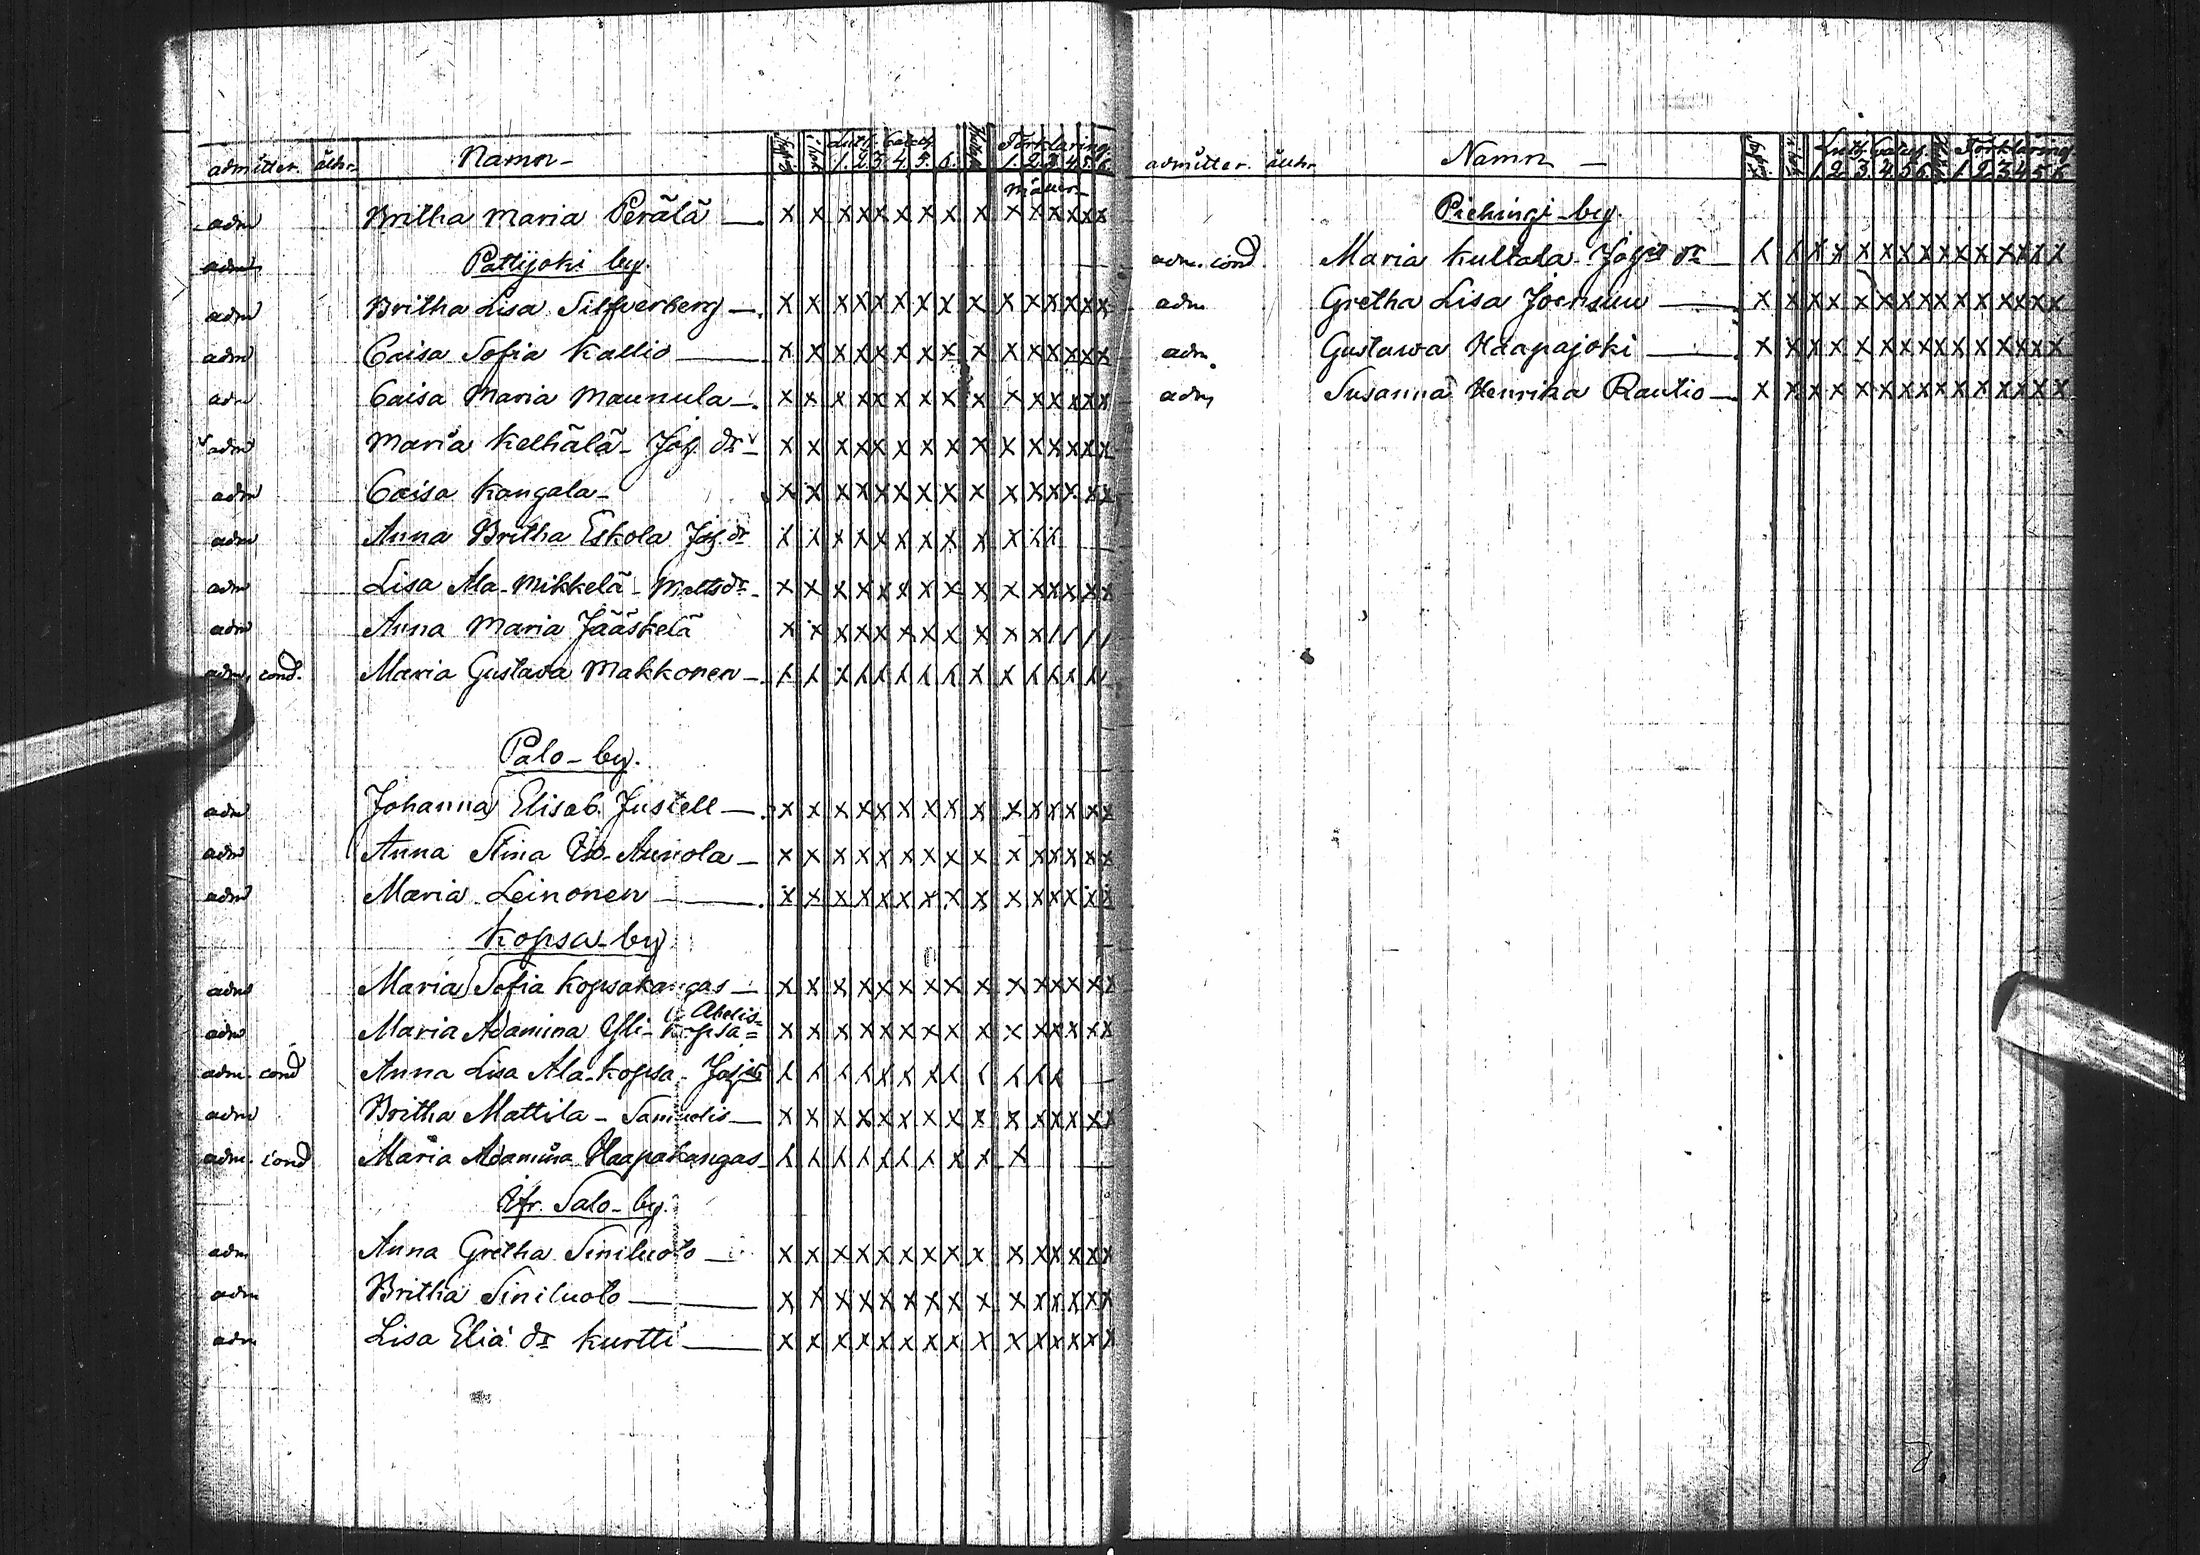 admitter. ålder Namn Luth. Catech. Förklaring
1. 2. 3. 4. 5. 6. 1. 2. 3. 4. 5. 6.
adm Britha Maria Perälä x x x x x x x x x x x x x x x
adm Pattijoki by.
adm Britha Lisa Silfverberg x x x x x x x x x x x x x x x
adm Caisa Sofia Kallio x x x x x x x x x x x x x x x
adm Caisa Maria Maunula x x x x x x x x x x x x x x x
adm Maria Kelhälä Joh. dr x x x x x x x x x x x x x x x
adm Caisa Kangala x x x x x x x x x x x x x x x
adm Anna Britha Eskola Joh. dr
adm Lisa Ala-Mikkelä Mattsdr x x x x x x x x x x x x x x x
adm Anna Maria Jääskelä
adm. cond. Maria Gustava Makkonen
Palo-by.
adm Johanna Elisab. Justell x x x x x x x x x x x x x x x
adm Anna Stina Iso-Aunola x x x x x x x x x x x x x x x
adm Maria Leinonen x x x x x x x x x x x x x x x
Kopsa-by
adm Maria Sofia Kopsakangas x x x x x x x x x x x x x x x
Abelis
adm Maria Adamina Yli-Kopsa x x x x x x x x x x x x x x x
adm. cond Anna Lisa Ala-Kopsa
adm Britha Mattila - Samuelis x x x x x x x x x x x x x x x
adm. cond Maria Adamina Haapakangas
Öfr. Salo-by.
adm Anna Gretha Siniluoto x x x x x x x x x x x x x x x
adm Britha Siniluoto x x x x x x x x x x x x x x x
adm Lisa Elia dr Kurtti x x x x x x x x x x x x x x x
admitter. ålder Namn Luth. Catech. Förklaring
1. 2. 3. 4. 5. 6. 1. 2. 3. 4. 5. 6.
Piehingi-by.
adm. cond. Maria Kultala dr
adm Gretha Lisa Joensuu x x x x x x x x x x x x x x x
adm Gustawa Haapajoki x x x x x x x x x x x x x x x
adm Susanna Henrika Rautio x x x x x x x x x x x x x x x